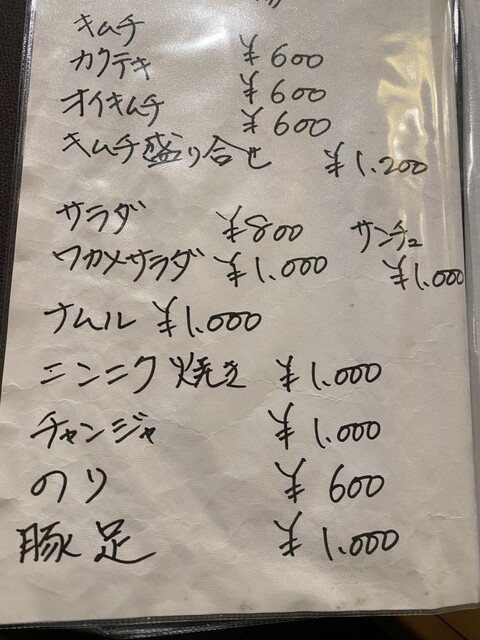 キムチ ¥600
カクテキ ¥600
オイキムチ ¥600
キムチ盛り合せ ¥1.200
サラダ ¥800 サンチュ
ワカメサラダ ¥1.000 ¥1.000
ナムル ¥1.000
ニンニク焼き ¥1.000
チャンジャ ¥1.000
のり ¥600
豚足 ¥1.000